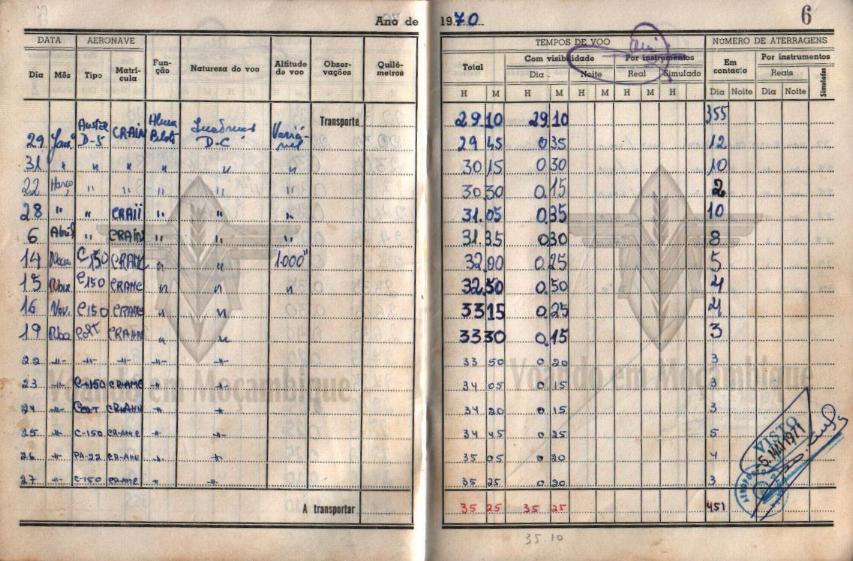 Ano de 1970. 6
DATA AERONAVE Fun-ção Natureza do voo Altitude do voo Obser-vações Quiló-metros TEMPOS DE VOO NÚMERO DE ATERRAGENS
Dia Mês Tipo Matrí-cula Total Com visibilidade Por instrumentos Em contacto Por instrumentos Simulados
Dia Noite Real Simulado Reais
H M H M H M H M H Dia Noite Dia Noite
Transporte 29 10 29 10 355
29 Jan. Auster D-5 CRAIN Aluno Piloto D.C. Variável 29 45 0 35 12
31 " " " " " " 30 15 0 30 10
22 Março " " " " " 30 30 0 15 2
28 " " CRAII " " " 31 05 0 35 10
6 Abril " CRAIN " " " 31 35 0 30 8
14 C150 " " 1.000" 32 00 0 25 5
15 C150 " " " 32 50 0 50 4
16 Nov. C150 " " 33 15 0 25 4
19 " " 33 30 0 15 3
22 -"- -"- -"- -"- -"- 33 50 0 20 3
23 -"- C-150 CR-AMC -"- -"- 34 05 0 15 3
24 -"- -"- -"- 34 20 0 15 3
25 -"- C-150 CR-AMC -"- -"- 34 45 0 25 5
26 -"- PA-22 -"- -"- 35 05 0 20 4
27 -"- C-150 CR-AMC -"- -"- 35 25 0 20 3
A transportar 35 25 35 25 451
35.10
VISTO
-5. MAI 1971
Voando em Moçambique
Voando em Moçambique